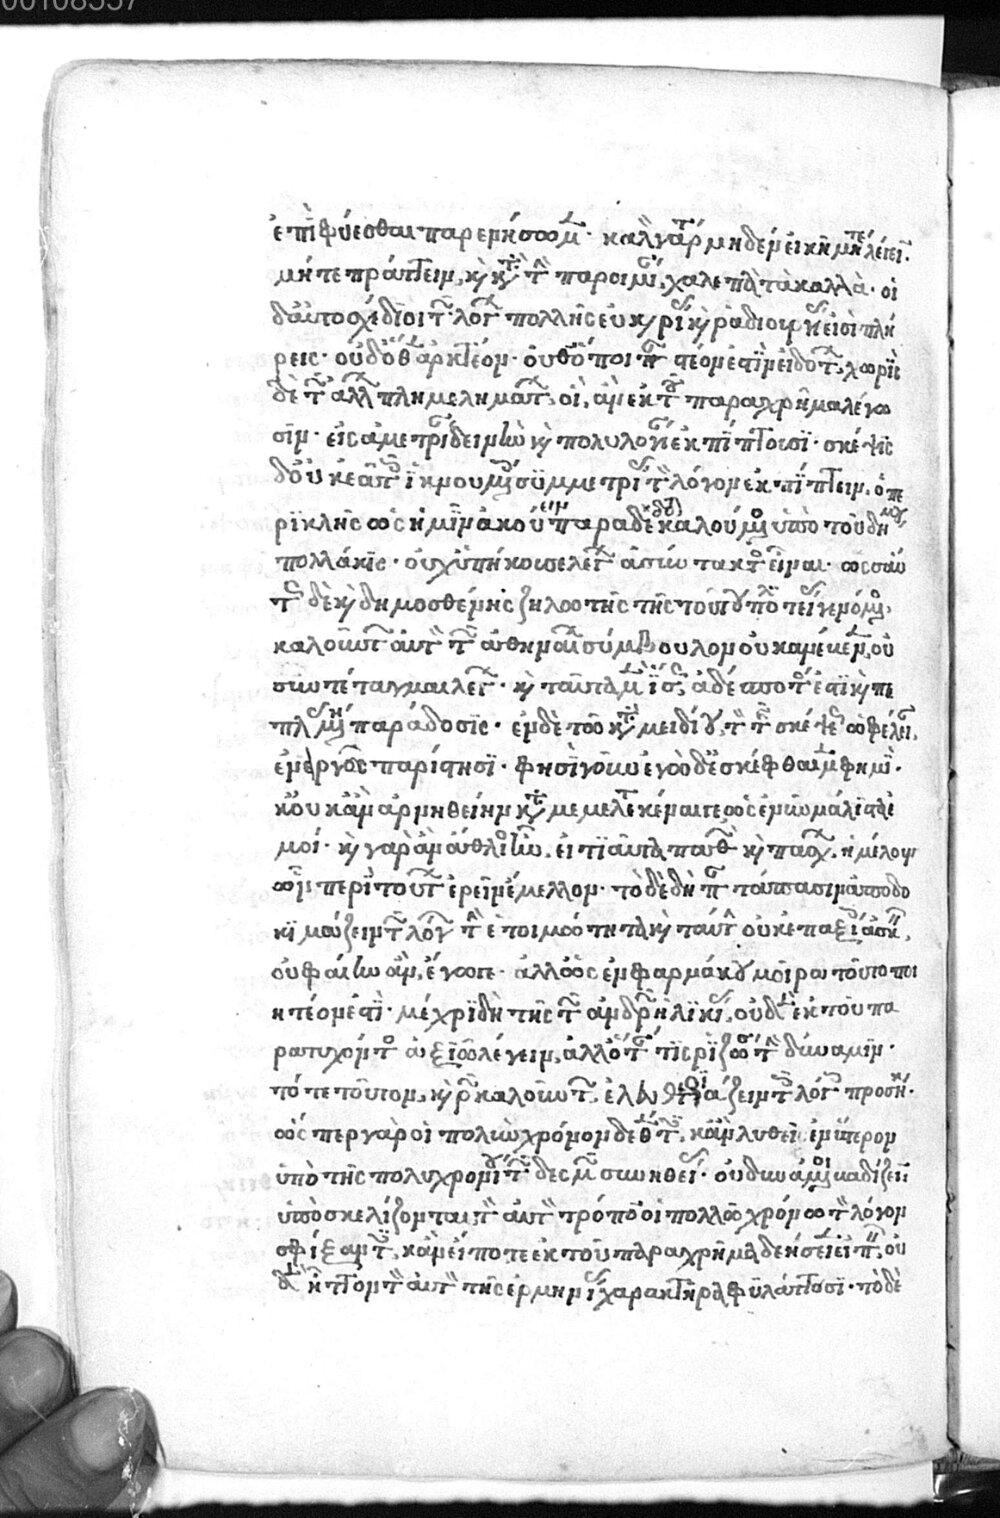 ἐπιφύεσθαι παρεμησαιμ. καλὸν γάρ τοι μηδὲν εἰκῆ μήτε λέγειν.
μήτε πράττειν, καὶ κατὰ τὴν παροιμίαν, χαλεπὰ τὰ καλλὰ. οἱ
δ' αὐτοσχέδιοι τῶν λόγων πολλῆς εὐχερείας καὶ ῥαδιουργίας εἰσὶ πλή
ρεις. οὐδ' ὅθεν ἀρκτέον. οὐθ' ὅποι παυστέον ἐστὶν εἰδότων, χωρὶς
δὲ τῶν ἄλλων πλημελημάτων, οἱ, ἂν ἐκ τοῦ παραχρῆμα λέγω
σιν. εἰς ἀμετρίαν δεινὴν καὶ πολυλογίαν ἐκπίπτουσι. σκέψις
δ' οὐκ ἐᾶ τῆς ἱκνουμένης συμμετρίας τὸν λόγον ἐκπίπτειν. ὁ πε
ρικλῆς ὡς ἡμῖν ἀκούειν παραδέδοται καλούμενος ὑπὸ τοῦ δήμου
πολλάκις. οὐχ ὑπήκουσε λέγων ἀσύντακτος εἶναι. ὡσαύ
τως δὲ καὶ δημοσθένης ζηλωτὴς τῆς τούτου πολιτείας γενόμενος,
καλούντων αὐτὸν τῶν ἀθηναίων σύμβουλον οὐκ ἀνέβαινεν, οὐ
συντέταγμαι λέγων. καὶ ταῦτα μὲν ἴσως ἀδέσποτος ἐστὶ καὶ πε
πλασμένη παράδοσις. ἐν δὲ τῶ κατὰ μειδίου, τὴν τῆς σκέψεως ὠφέλειαν,
ἐναργῶς παρίστησι. φησὶ γοῦν ἐγὼ δὲ ἐσκέφθαι μὲν φημὶ.
κοὐκ ἂν ἀρνηθείην καὶ μεμελετηκέναι γε ὡς ἐνῆν μάλιστα ἐ
μοί. καὶ γὰρ ἂν ἄθλιος ἦν, εἰ τοιαῦτα παθὼν καὶ πάσχων, ἠμέλουν
ὧν περὶ τούτων ἐρεῖν ἔμελλον. τὸ δὲ δὴ παντάπασιν ἀποδο
κιμάζειν τῶν λόγων τὴν ἑτοιμότητα, καὶ ταύτην οὐκ ἐπ' ἀξίαν ἀσκεῖν,
οὐ φαίην ἂν, ἔγωγε. ἀλλ' ὡς ἐν φαρμάκου μοίρα τοῦτο ποι
ητέον ἐστὶ. μέχρι δὴ τῆς τῶν ἀνδρῶν ἡλικίας, οὐδὲν ἐκ τοῦ πα
ρατυχόντος ἀξιῶ λέγειν, ἀλλ' ὅταν τις ῥιζώση τὴν δύναμιν.
τότε τοῦτον, καιρῶν καλούντων, ἐλευθεριάζειν τοῖς λόγοις προσήκει.
ὥσπερ γὰρ οἱ πολὺν χρόνον δεθέντες, κἂν λυθεῖεν ὕστερον
ὑπὸ τῆς πολυχρονίου τῶν δεσμῶν συνηθείας. οὐ δυνάμενοι βαδίζειν
ὑποσκελίζονται, τὸν αὐτὸν τρόπον οἱ πολλῶ χρόνω τὸν λόγον
σφίξαντες, κἂν εἴποτε ἐκ τοῦ παραχρῆμα δεήσειεν εἰπεῖν, οὐ
δὲν ἧττον τὸν αὐτὸν τῆς ἑρμηνείας χαρακτῆρα φυλάττουσι. τὸ δὲ